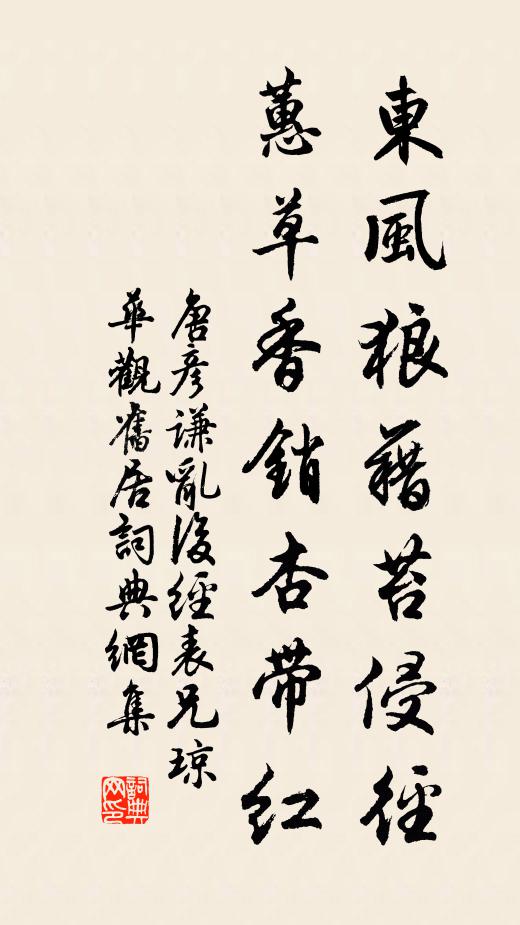 東風狼藉苔侵徑
蕙草香銷杏帶紅
唐彥謙亂後經表兄琼
華觀舊居詞典網集
詞典
网印